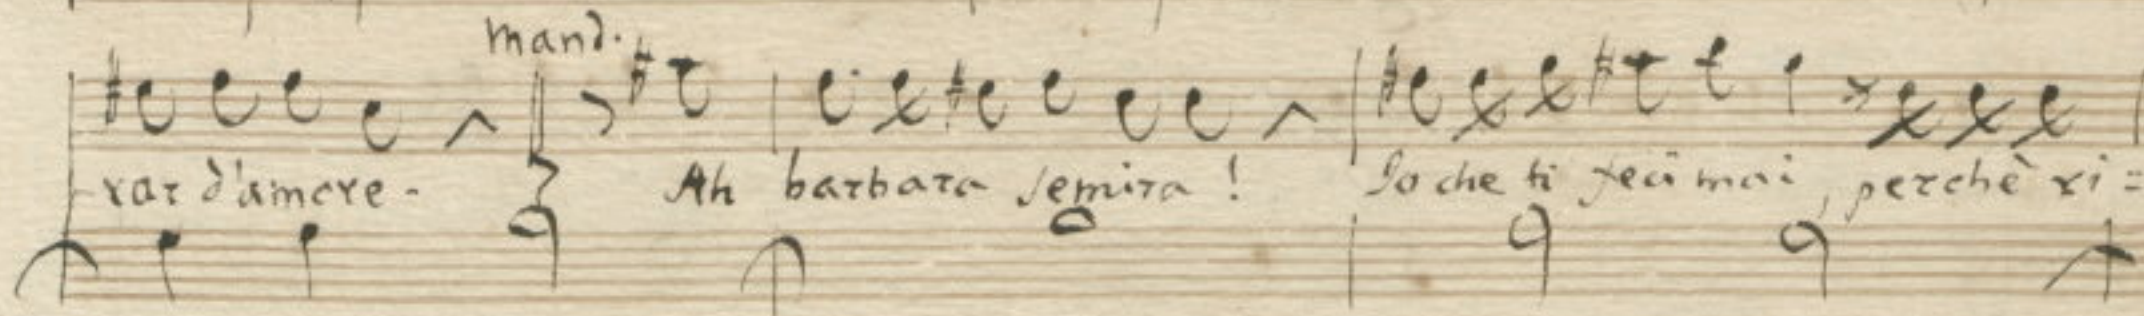 mand.
rar d'amore. Ah barbara Semira! Io che ti feci mai, perchè ri=